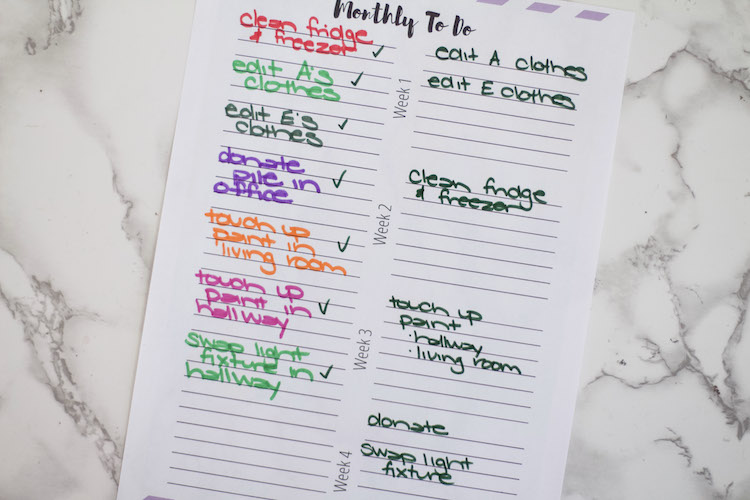 Monthly To Do
clean fridge
& freezer ✓
edit A's ✓
clothes
edit E's ✓
clothes
donate
pile in ✓
office
touch up
paint in ✓
living room
touch up
paint in ✓
hallway
swap light
fixture in ✓
hallway
Week 1
edit A clothes
edit E clothes
Week 2
clean fridge
& freezer
Week 3
touch up
paint
·hallway
·living room
Week 4
donate
swap light
fixture